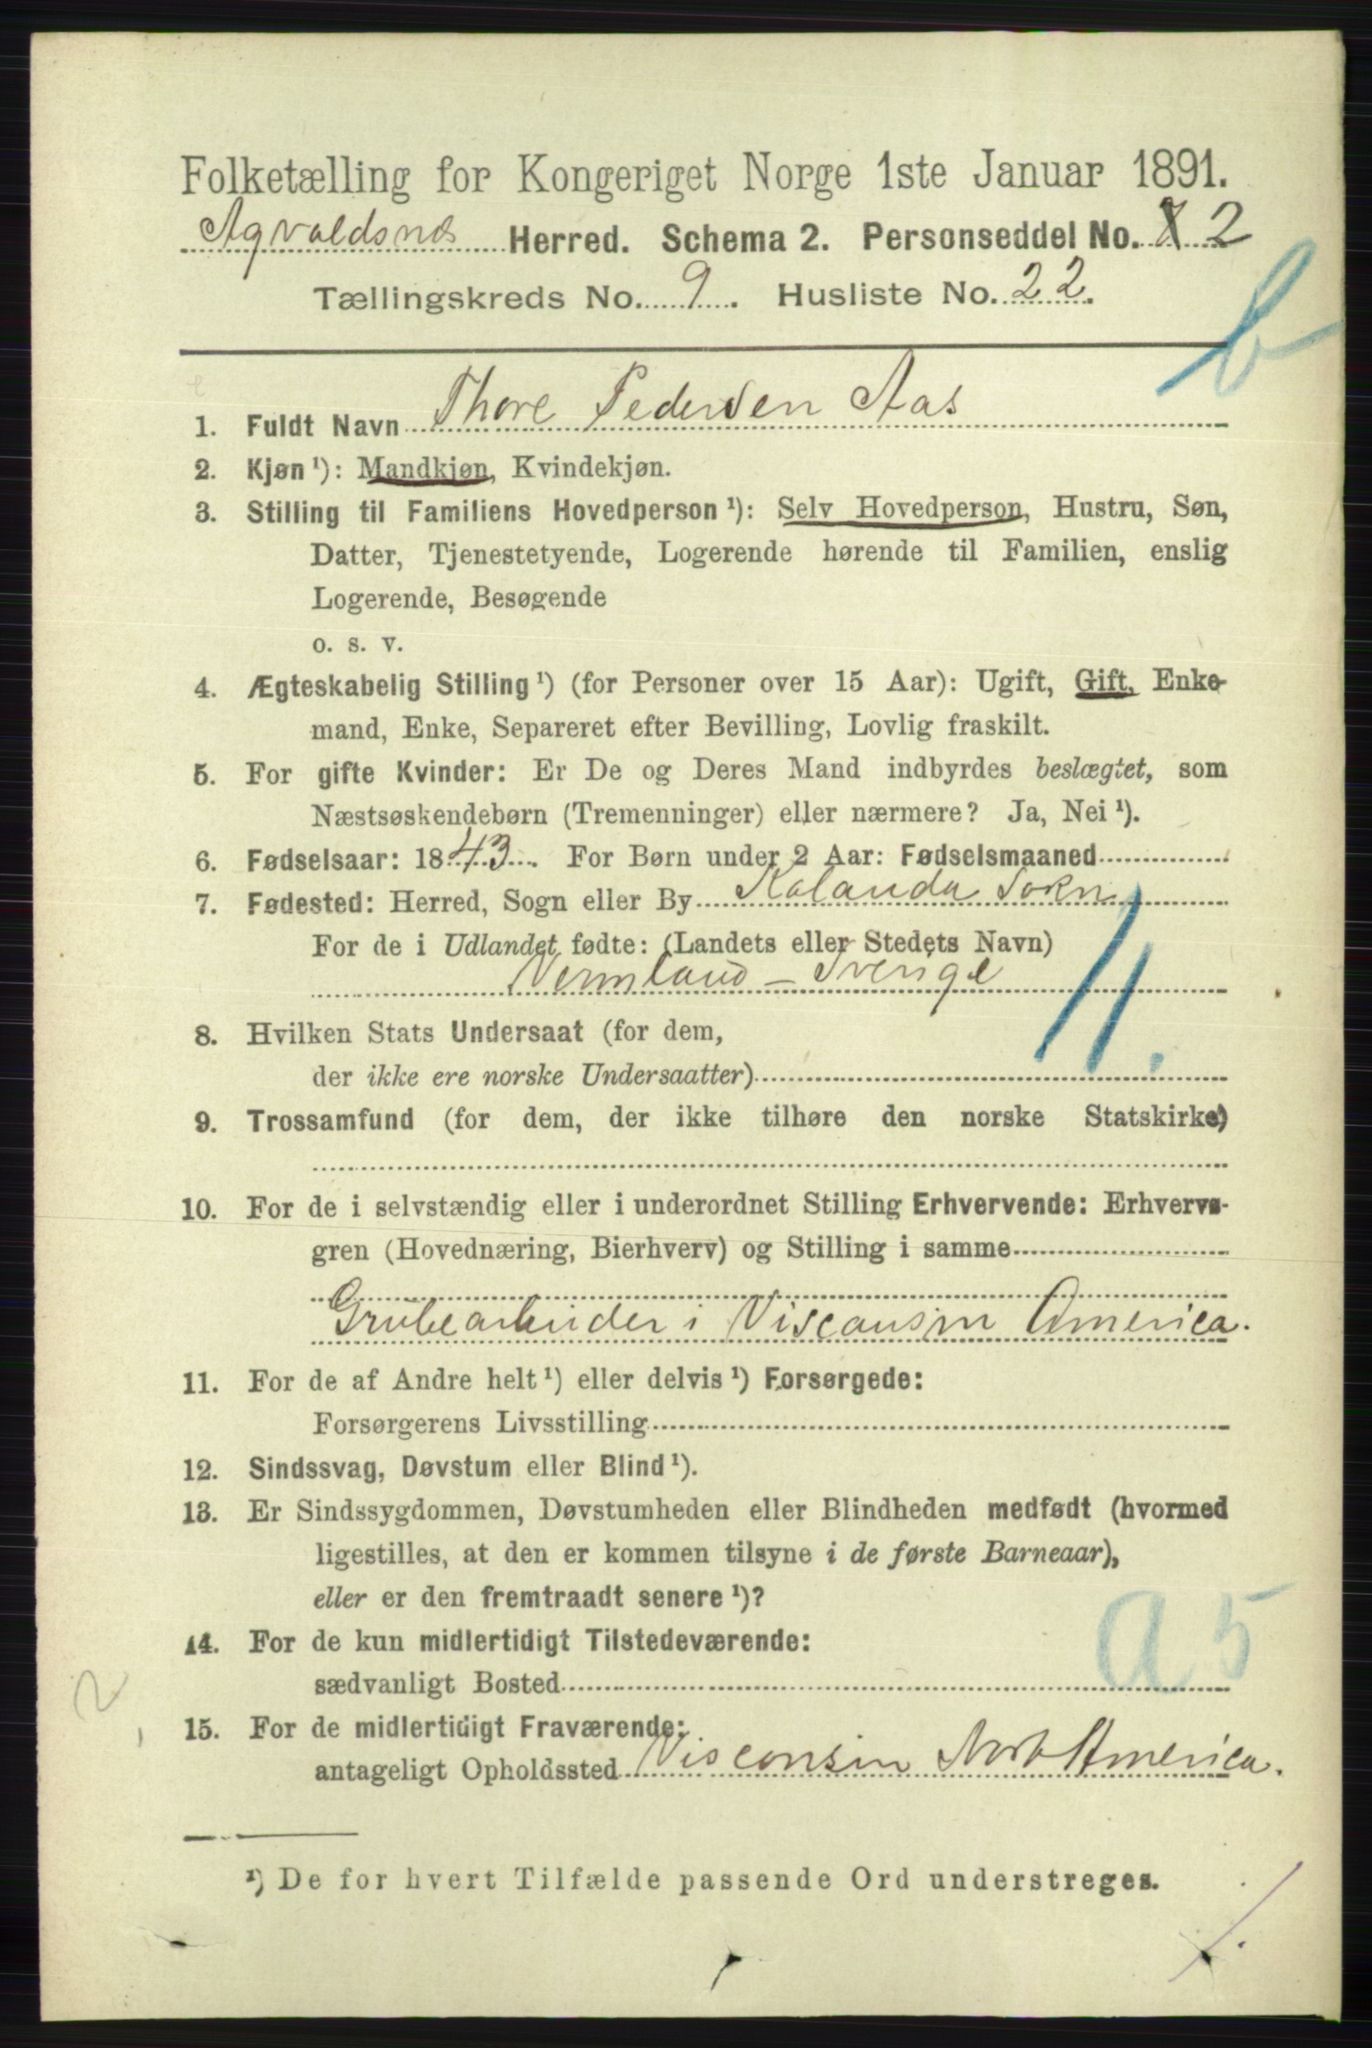 Folketælling for Kongeriget Norge 1ste Januar 1891.
Agvaldsnes Herred. Schema 2. Personseddel No. 2
Tællingskreds No. 9. Husliste No. 22.
b
1. Fuldt Navn Thore Pedersen Aas
2. Kjøn ¹): Mandkjøn, Kvindekjøn.
3. Stilling til Familiens Hovedperson ¹): Selv Hovedperson, Hustru, Søn,
Datter, Tjenestetyende, Logerende hørende til Familien, enslig
Logerende, Besøgende
o. s. v.
4. Ægteskabelig Stilling ¹) (for Personer over 15 Aar): Ugift, Gift, Enke-
mand, Enke, Separeret efter Bevilling, Lovlig fraskilt.
5. For gifte Kvinder: Er De og Deres Mand indbyrdes beslægtet, som
Næstsøskendebørn (Tremenninger) eller nærmere? Ja, Nei ¹).
6. Fødselsaar: 1843. For Børn under 2 Aar: Fødselsmaaned
7. Fødested: Herred, Sogn eller By Kolanda Sokn
For de i Udlandet fødte: (Landets eller Stedets Navn)
Vermland - Sverige
11.
8. Hvilken Stats Undersaat (for dem,
der ikke ere norske Undersaatter)
9. Trossamfund (for dem, der ikke tilhøre den norske Statskirke)
10. For de i selvstændig eller i underordnet Stilling Erhvervende: Erhvervs-
gren (Hovednæring, Bierhverv) og Stilling i samme
Grubearbeider i Viscansin America.
11. For de af Andre helt ¹) eller delvis ¹) Forsørgede:
Forsørgerens Livsstilling
12. Sindssvag, Døvstum eller Blind ¹).
13. Er Sindssygdommen, Døvstumheden eller Blindheden medfødt (hvormed
ligestilles, at den er kommen tilsyne i de første Barneaar),
eller er den fremtraadt senere ¹)?
a 5
14. For de kun midlertidigt Tilstedeværende:
sædvanligt Bosted
2
15. For de midlertidigt Fraværende:
antageligt Opholdssted Visconsin Nord America.
¹) De for hvert Tilfælde passende Ord understreges.